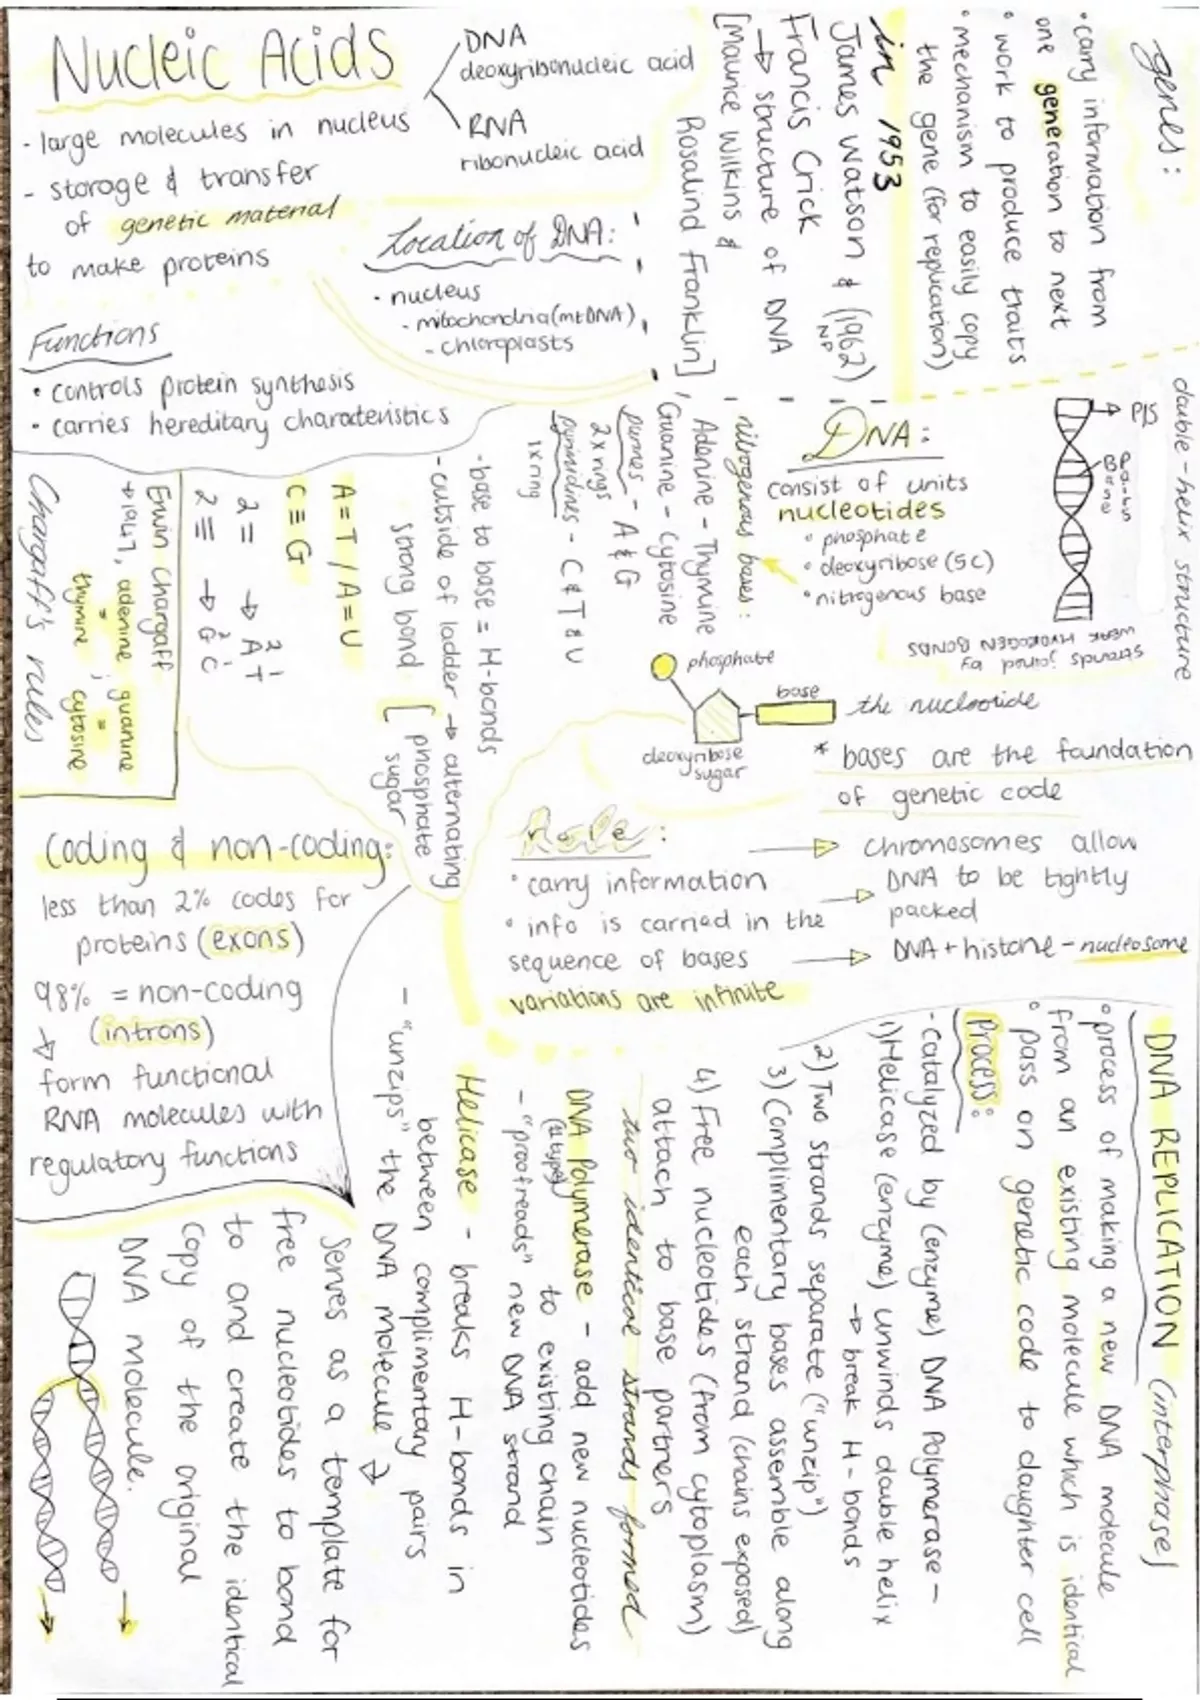 Nucleic Acids
DNA
deoxyribonucleic acid
RNA
ribonucleic acid
- large molecules in nucleus
- storage & transfer
of genetic material
to make proteins
Location of DNA:
• nucleus
- mitochondria (mtDNA)
- chloroplasts
Functions
• controls protein synthesis
• carries hereditary characteristics
genes:
• carry information from
one generation to next
• work to produce traits
• mechanism to easily copy
the gene (for replication)
in 1953
James Watson & (1962)
NP
Francis Crick
→ structure of DNA
[Maurice Wilkins &
Rosalind Franklin]
double-helix structure
P/S
Bases
strands joined by
WEAK HYDROGEN BONDS
DNA:
consist of units
nucleotides
• phosphate
• deoxyribose (5C)
• nitrogenous base
nitrogenous bases:
Adenine - Thymine
Guanine - Cytosine
purines - A & G
2 x rings
pyrimidines - C & T & U
1 x ring
phosphate
base
the nucleotide
deoxyribose
sugar
* bases are the foundation
of genetic code
- base to base = H-bonds
- outside of ladder → alternating
strong bond [ phosphate
sugar
A = T / A = U
C ≡ G
2 = → A T
2 1
2 ≡ → G C
2 1
Erwin Chargaff
→ 1947, adenine = thymine ; guanine = cytosine
Chargaff's rules
Coding & non-coding:
less than 2% codes for
proteins (exons)
98% = non-coding
(introns)
↓ form functional
RNA molecules with
regulatory functions
Role:
• carry information
• info is carried in the
sequence of bases
variations are infinite
→ chromosomes allow
→ DNA to be tightly
packed
→ DNA + histone - nucleosome
DNA REPLICATION (interphase)
• process of making a new DNA molecule
from an existing molecule which is identical
• pass on genetic code to daughter cell
Process:
- catalyzed by (enzyme) DNA Polymerase -
1) Helicase (enzyme) unwinds double helix
→ break H-bonds
2) Two strands separate ("unzip")
3) Complimentary bases assemble along
each strand (chains exposed)
4) Free nucleotides (from cytoplasm)
attach to base partners
two identical strands formed
DNA Polymerase - add new nucleotides
(# type) to existing chain
- "proofreads" new DNA strand
Helicase - breaks H-bonds in
between complimentary pairs
- "unzips" the DNA molecule →
Serves as a template for
free nucleotides to bond
to and create the identical
copy of the original
DNA molecule.